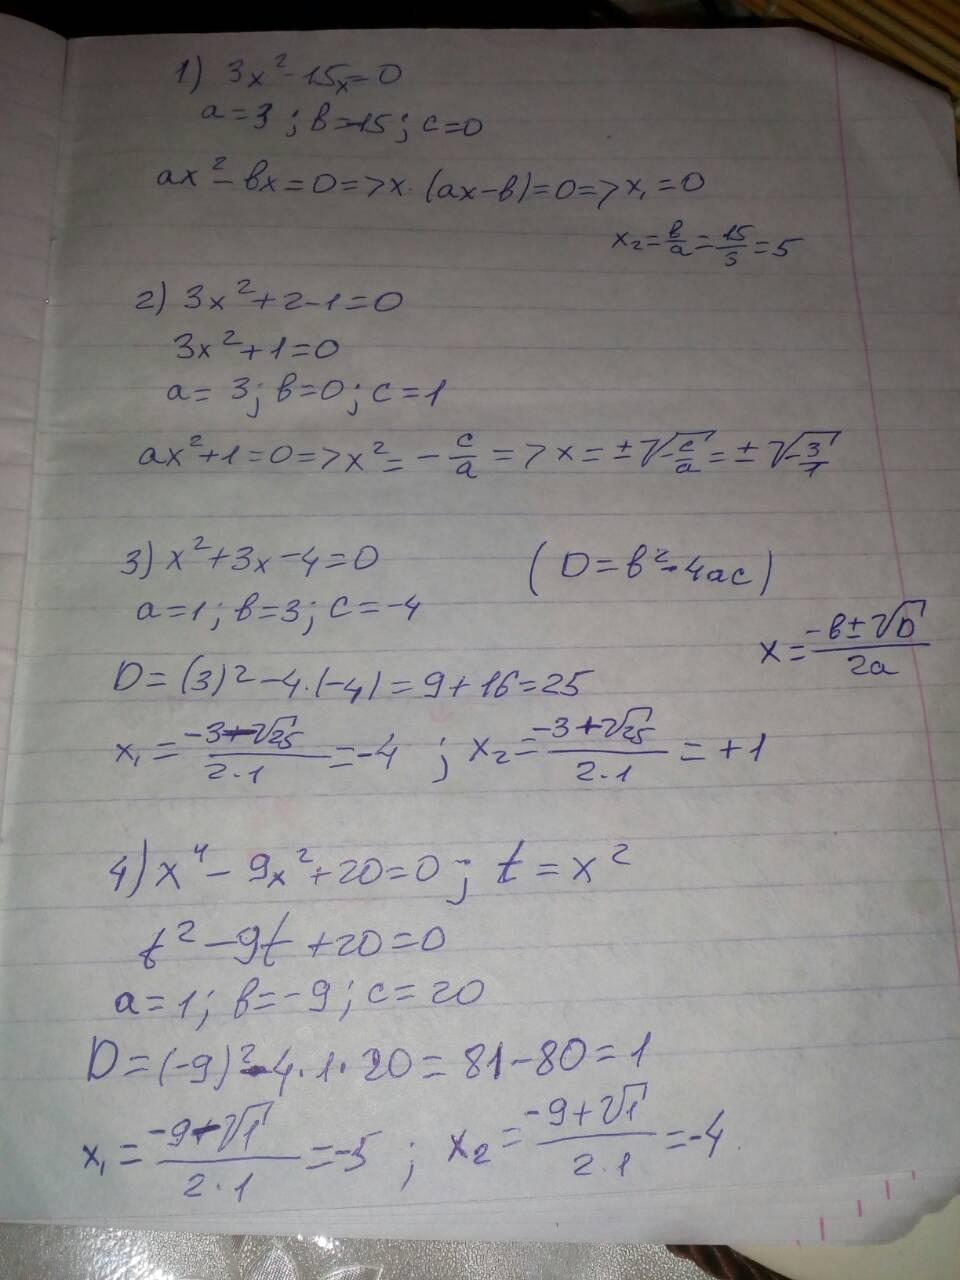 1) 3x² - 15x = 0
a = 3 ; в = -15 ; c = 0
ax² - вx = 0 => x · (ax - в) = 0 => x₁ = 0
x₂ = в/a = 15/3 = 5
2) 3x² + 2 - 1 = 0
3x² + 1 = 0
a = 3 ; в = 0 ; c = 1
ax² + 1 = 0 => x² = - c/a => x = ± √(-c/a) = ± √(-3/1)
3) x² + 3x - 4 = 0 (D = в² - 4ac)
a = 1 ; в = 3 ; c = -4
x = (-в ± √D)/2a
D = (3)² - 4 · (-4) = 9 + 16 = 25
x₁ = (-3 - √25)/(2 · 1) = -4 ; x₂ = (-3 + √25)/(2 · 1) = +1
4) x⁴ - 9x² + 20 = 0 ; t = x²
t² - 9t + 20 = 0
a = 1 ; в = -9 ; c = 20
D = (-9)² - 4 · 1 · 20 = 81 - 80 = 1
x₁ = (-9 - √1)/(2 · 1) = -5 ; x₂ = (-9 + √1)/(2 · 1) = -4